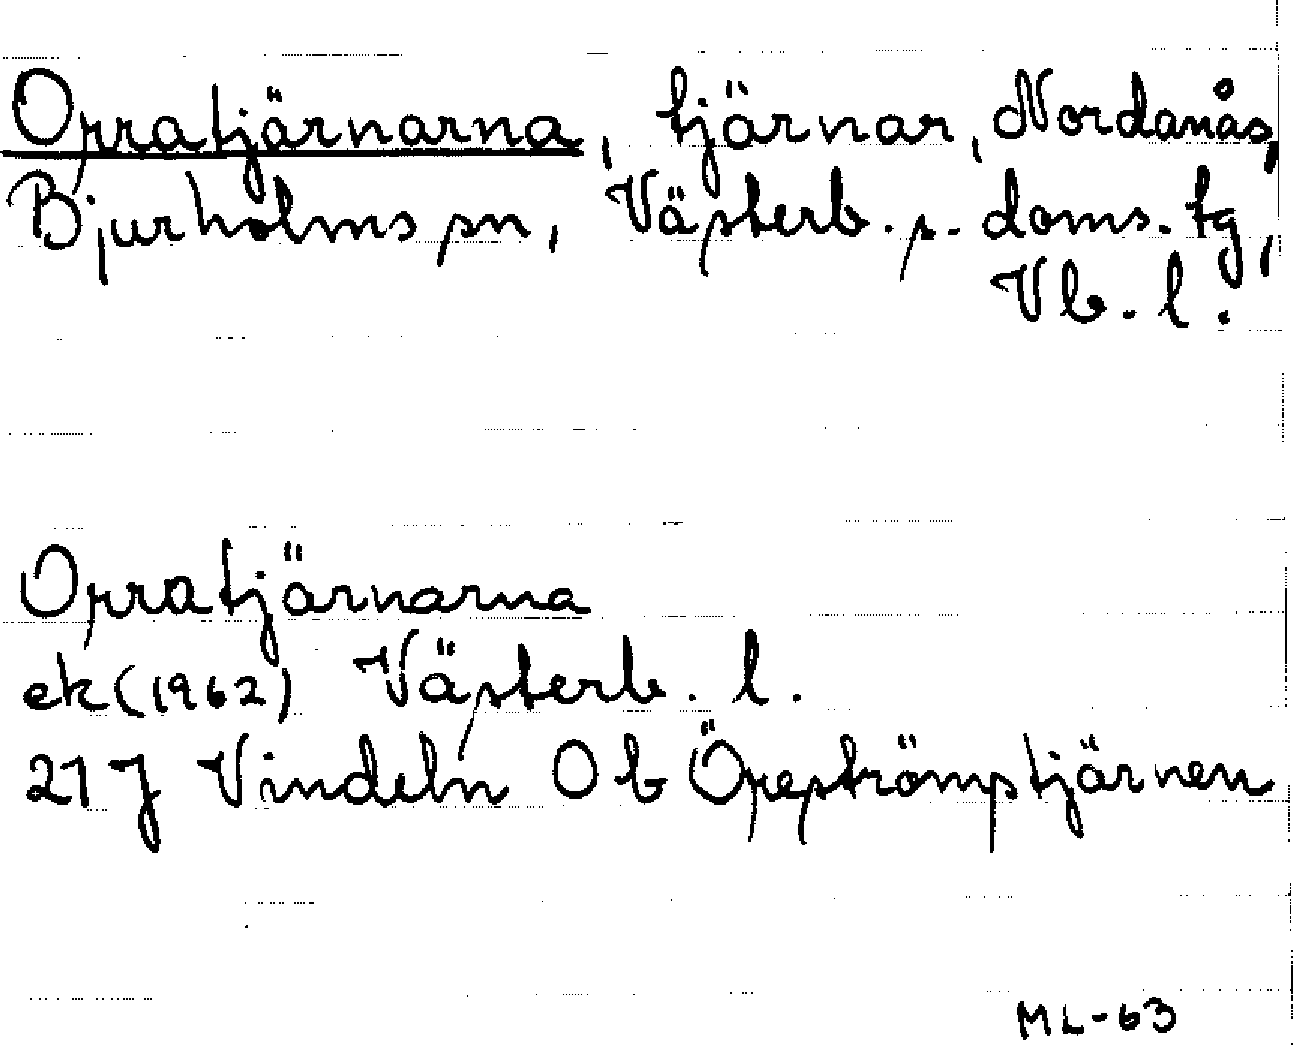 Orratjärnarna, tjärnar, Nordanås,
Bjurholms sn, Västerb. s. doms. tg,
Vb. l.
Orratjärnarna
ek (1962) Västerb. l.
21 J Vindeln 0 b Öreströmstjärnen
ML-63